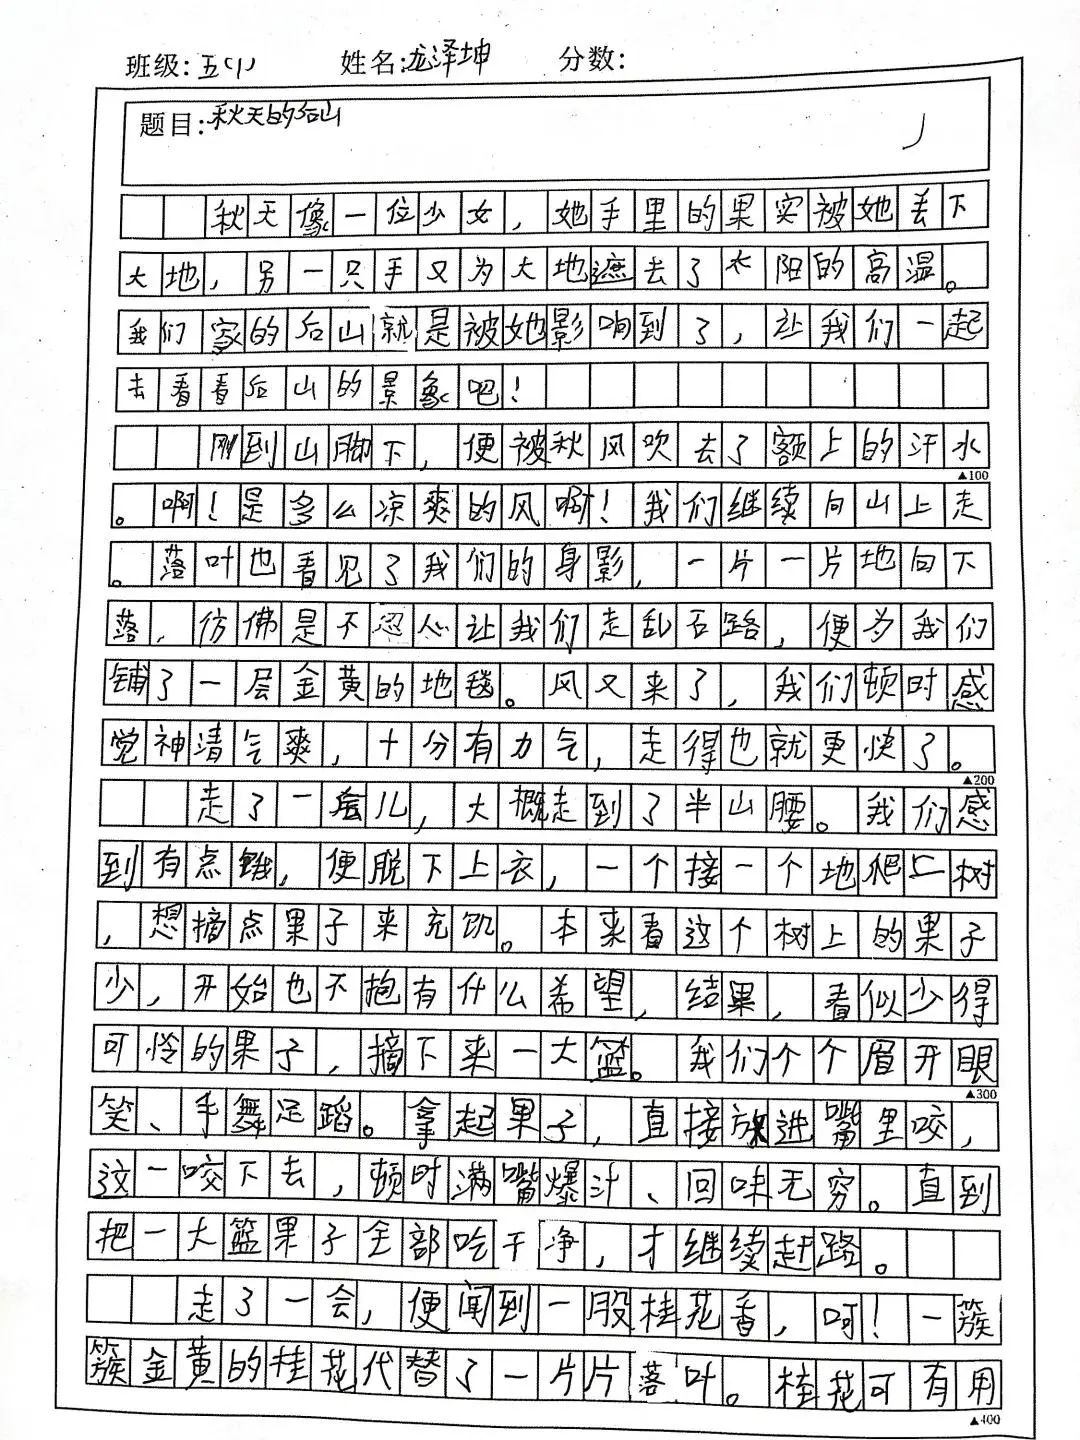 班级:五(1) 姓名:龙泽坤 分数:
题目:秋天的后山
秋天像一位少女,她手里的果实被她丢下
大地,另一只手又为大地遮去了太阳的高温。
我们家的后山就是被她影响到了,让我们一起
去看看后山的景象吧!
刚到山脚下,便被秋风吹去了额上的汗水
▲100
。啊!是多么凉爽的风啊!我们继续向山上走
。落叶也看见了我们的身影,一片一片地向下
落,仿佛是不忍心让我们走乱石路,便为我们
铺了一层金黄的地毯。风又来了,我们顿时感
觉神清气爽,十分有力气,走得也就更快了。
▲200
走了一会儿,大概走到了半山腰。我们感
到有点饿,便脱下上衣,一个接一个地爬上树
,想摘点果子来充饥。本来看这个树上的果子
少,开始也不抱有什么希望,结果,看似少得
可怜的果子,摘下来一大篮。我们个个眉开眼
▲300
笑、手舞足蹈。拿起果子,直接放进嘴里咬,
这一咬下去,顿时满嘴爆汁、回味无穷。直到
把一大篮果子全部吃干净,才继续赶路。
走了一会,便闻到一股桂花香,呵!一簇
簇金黄的桂花代替了一片片落叶。桂花可有用
▲400